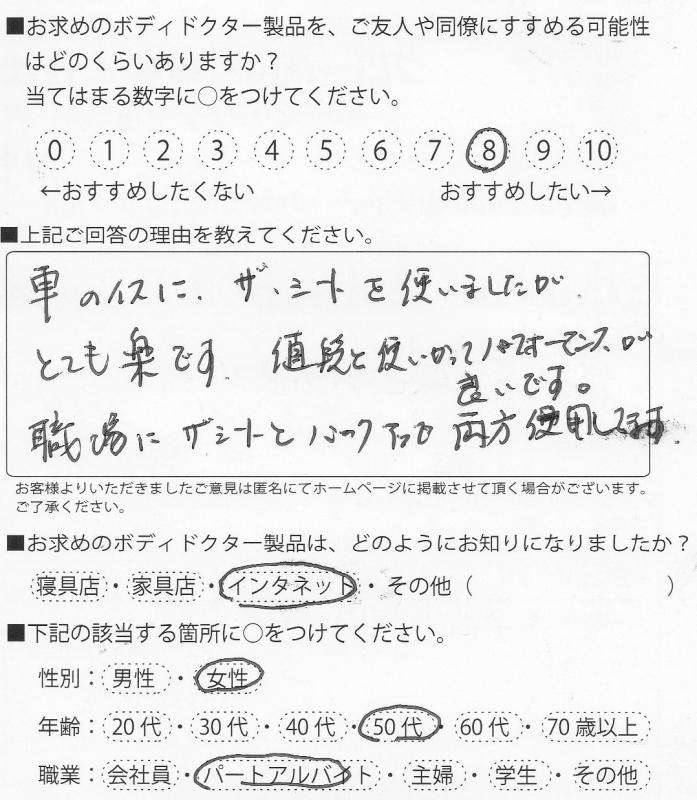 ■お求めのボディドクター製品を、ご友人や同僚にすすめる可能性
はどのくらいありますか？
当てはまる数字に○をつけてください。
0 1 2 3 4 5 6 7 8 9 10
←おすすめしたくない おすすめしたい→
■上記ご回答の理由を教えてください。
車のイスに、ザ・シートを使いましたが、
とても楽です。値段と使いかってパフォーマンスが
良いです。
職場にザシートとバックアップ両方使用してます.
お客様よりいただきましたご意見は匿名にてホームページに掲載させて頂く場合がございます。
ご了承ください。
■お求めのボディドクター製品は、どのようにお知りになりましたか？
寝具店・家具店・インタネット・その他（ ）
■下記の該当する箇所に○をつけてください。
性別：男性・女性
年齢：20代・30代・40代・50代・60代・70歳以上
職業：会社員・パートアルバイト・主婦・学生・その他